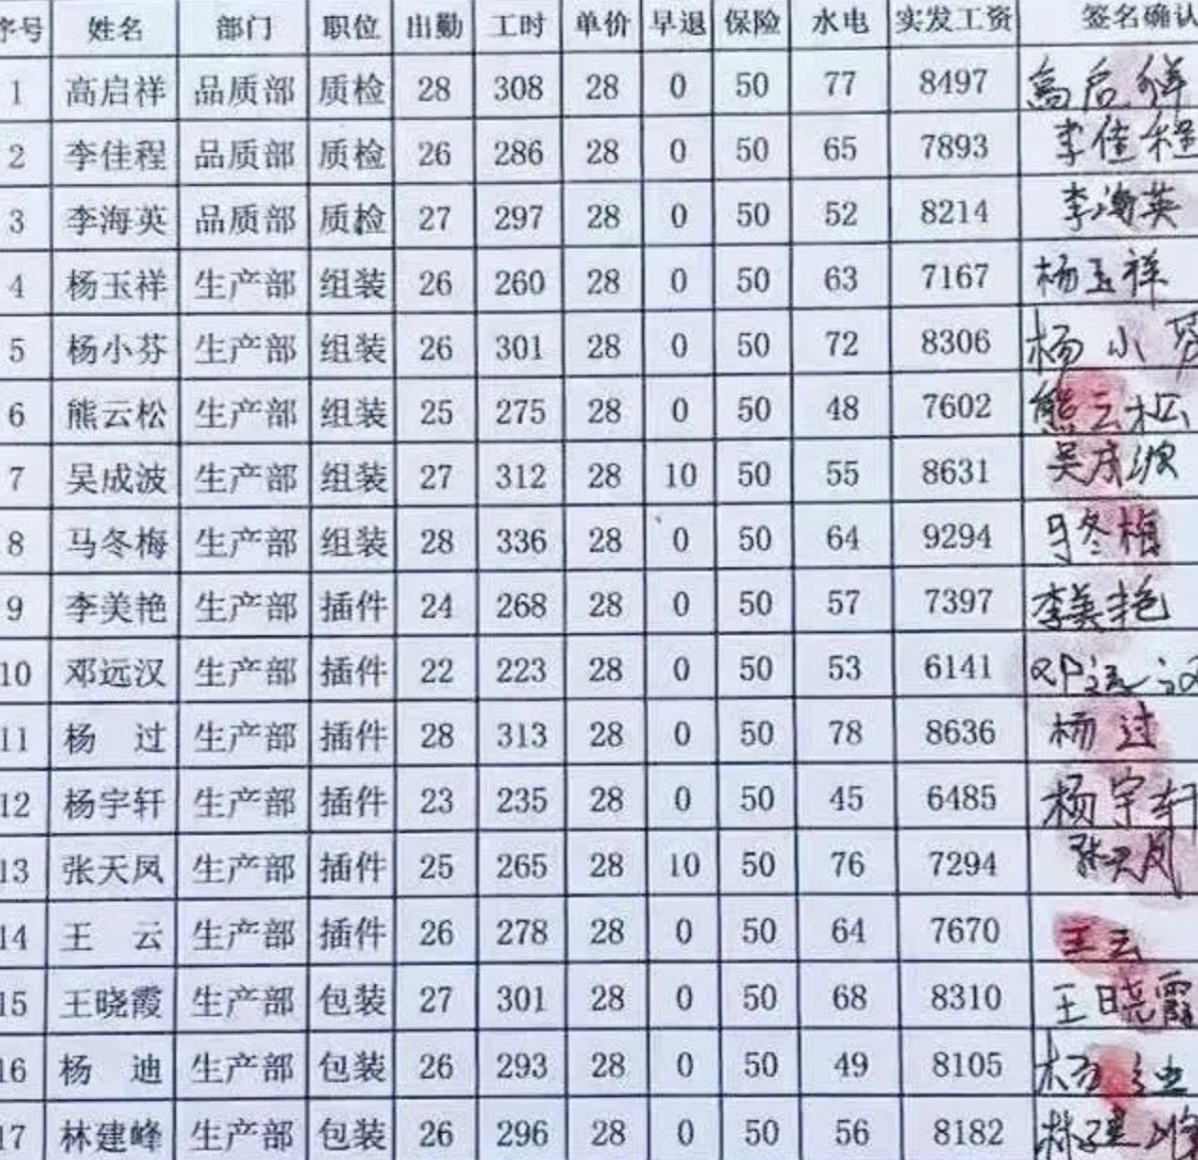 序号 姓名 部门 职位 出勤 工时 单价 早退 保险 水电 实发工资 签名确认
1 高启祥 品质部 质检 28 308 28 0 50 77 8497 高启祥
2 李佳程 品质部 质检 26 286 28 0 50 65 7893 李佳程
3 李海英 品质部 质检 27 297 28 0 50 52 8214 李海英
4 杨玉祥 生产部 组装 26 260 28 0 50 63 7167 杨玉祥
5 杨小芬 生产部 组装 26 301 28 0 50 72 8306 杨小芬
6 熊云松 生产部 组装 25 275 28 0 50 48 7602 熊云松
7 吴成波 生产部 组装 27 312 28 10 50 55 8631 吴成波
8 马冬梅 生产部 组装 28 336 28 0 50 64 9294 马冬梅
9 李美艳 生产部 插件 24 268 28 0 50 57 7397 李美艳
10 邓远汉 生产部 插件 22 223 28 0 50 53 6141 邓远汉
11 杨 过 生产部 插件 28 313 28 0 50 78 8636 杨过
12 杨宇轩 生产部 插件 23 235 28 0 50 45 6485 杨宇轩
13 张天凤 生产部 插件 25 265 28 10 50 76 7294 张天凤
14 王 云 生产部 插件 26 278 28 0 50 64 7670 王云
15 王晓霞 生产部 包装 27 301 28 0 50 68 8310 王晓霞
16 杨 迪 生产部 包装 26 293 28 0 50 49 8105 杨迪
17 林建峰 生产部 包装 26 296 28 0 50 56 8182 林建峰